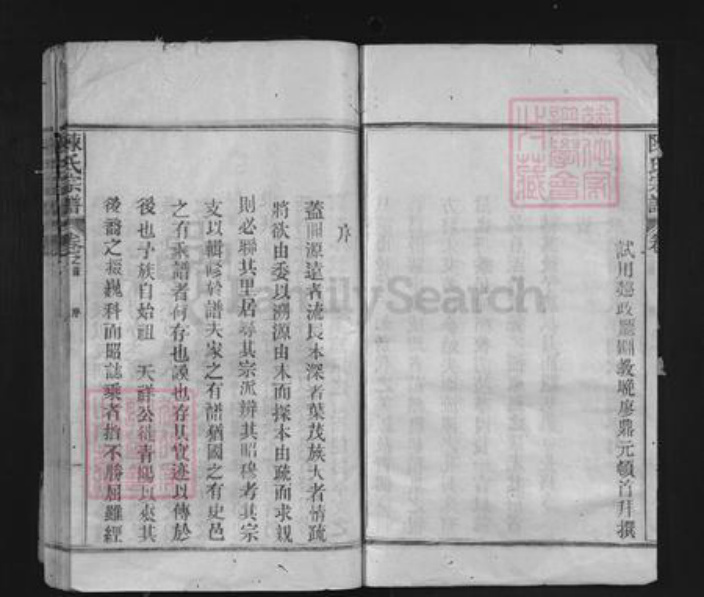 試用懿政廳訓教晚廖鼎元頓首拜撰
序
蓋聞源遠者流長本深者葉茂族大者情疏
將欲由委以溯源由末而探本由疏而求親
則必聯其里居尋其宗派辨其昭穆考其宗
支以輯修於譜夫家之有譜猶國之有史邑
之有乘譜者何存也謨也存其實迹以傳於
後也予族自始祖 天祥公從青陽以來其
後裔之掇巍科而昭誌乘者指不勝屈雖經
陳氏宗譜 卷之首 序 一
陳氏宗譜 卷
FamilySearch